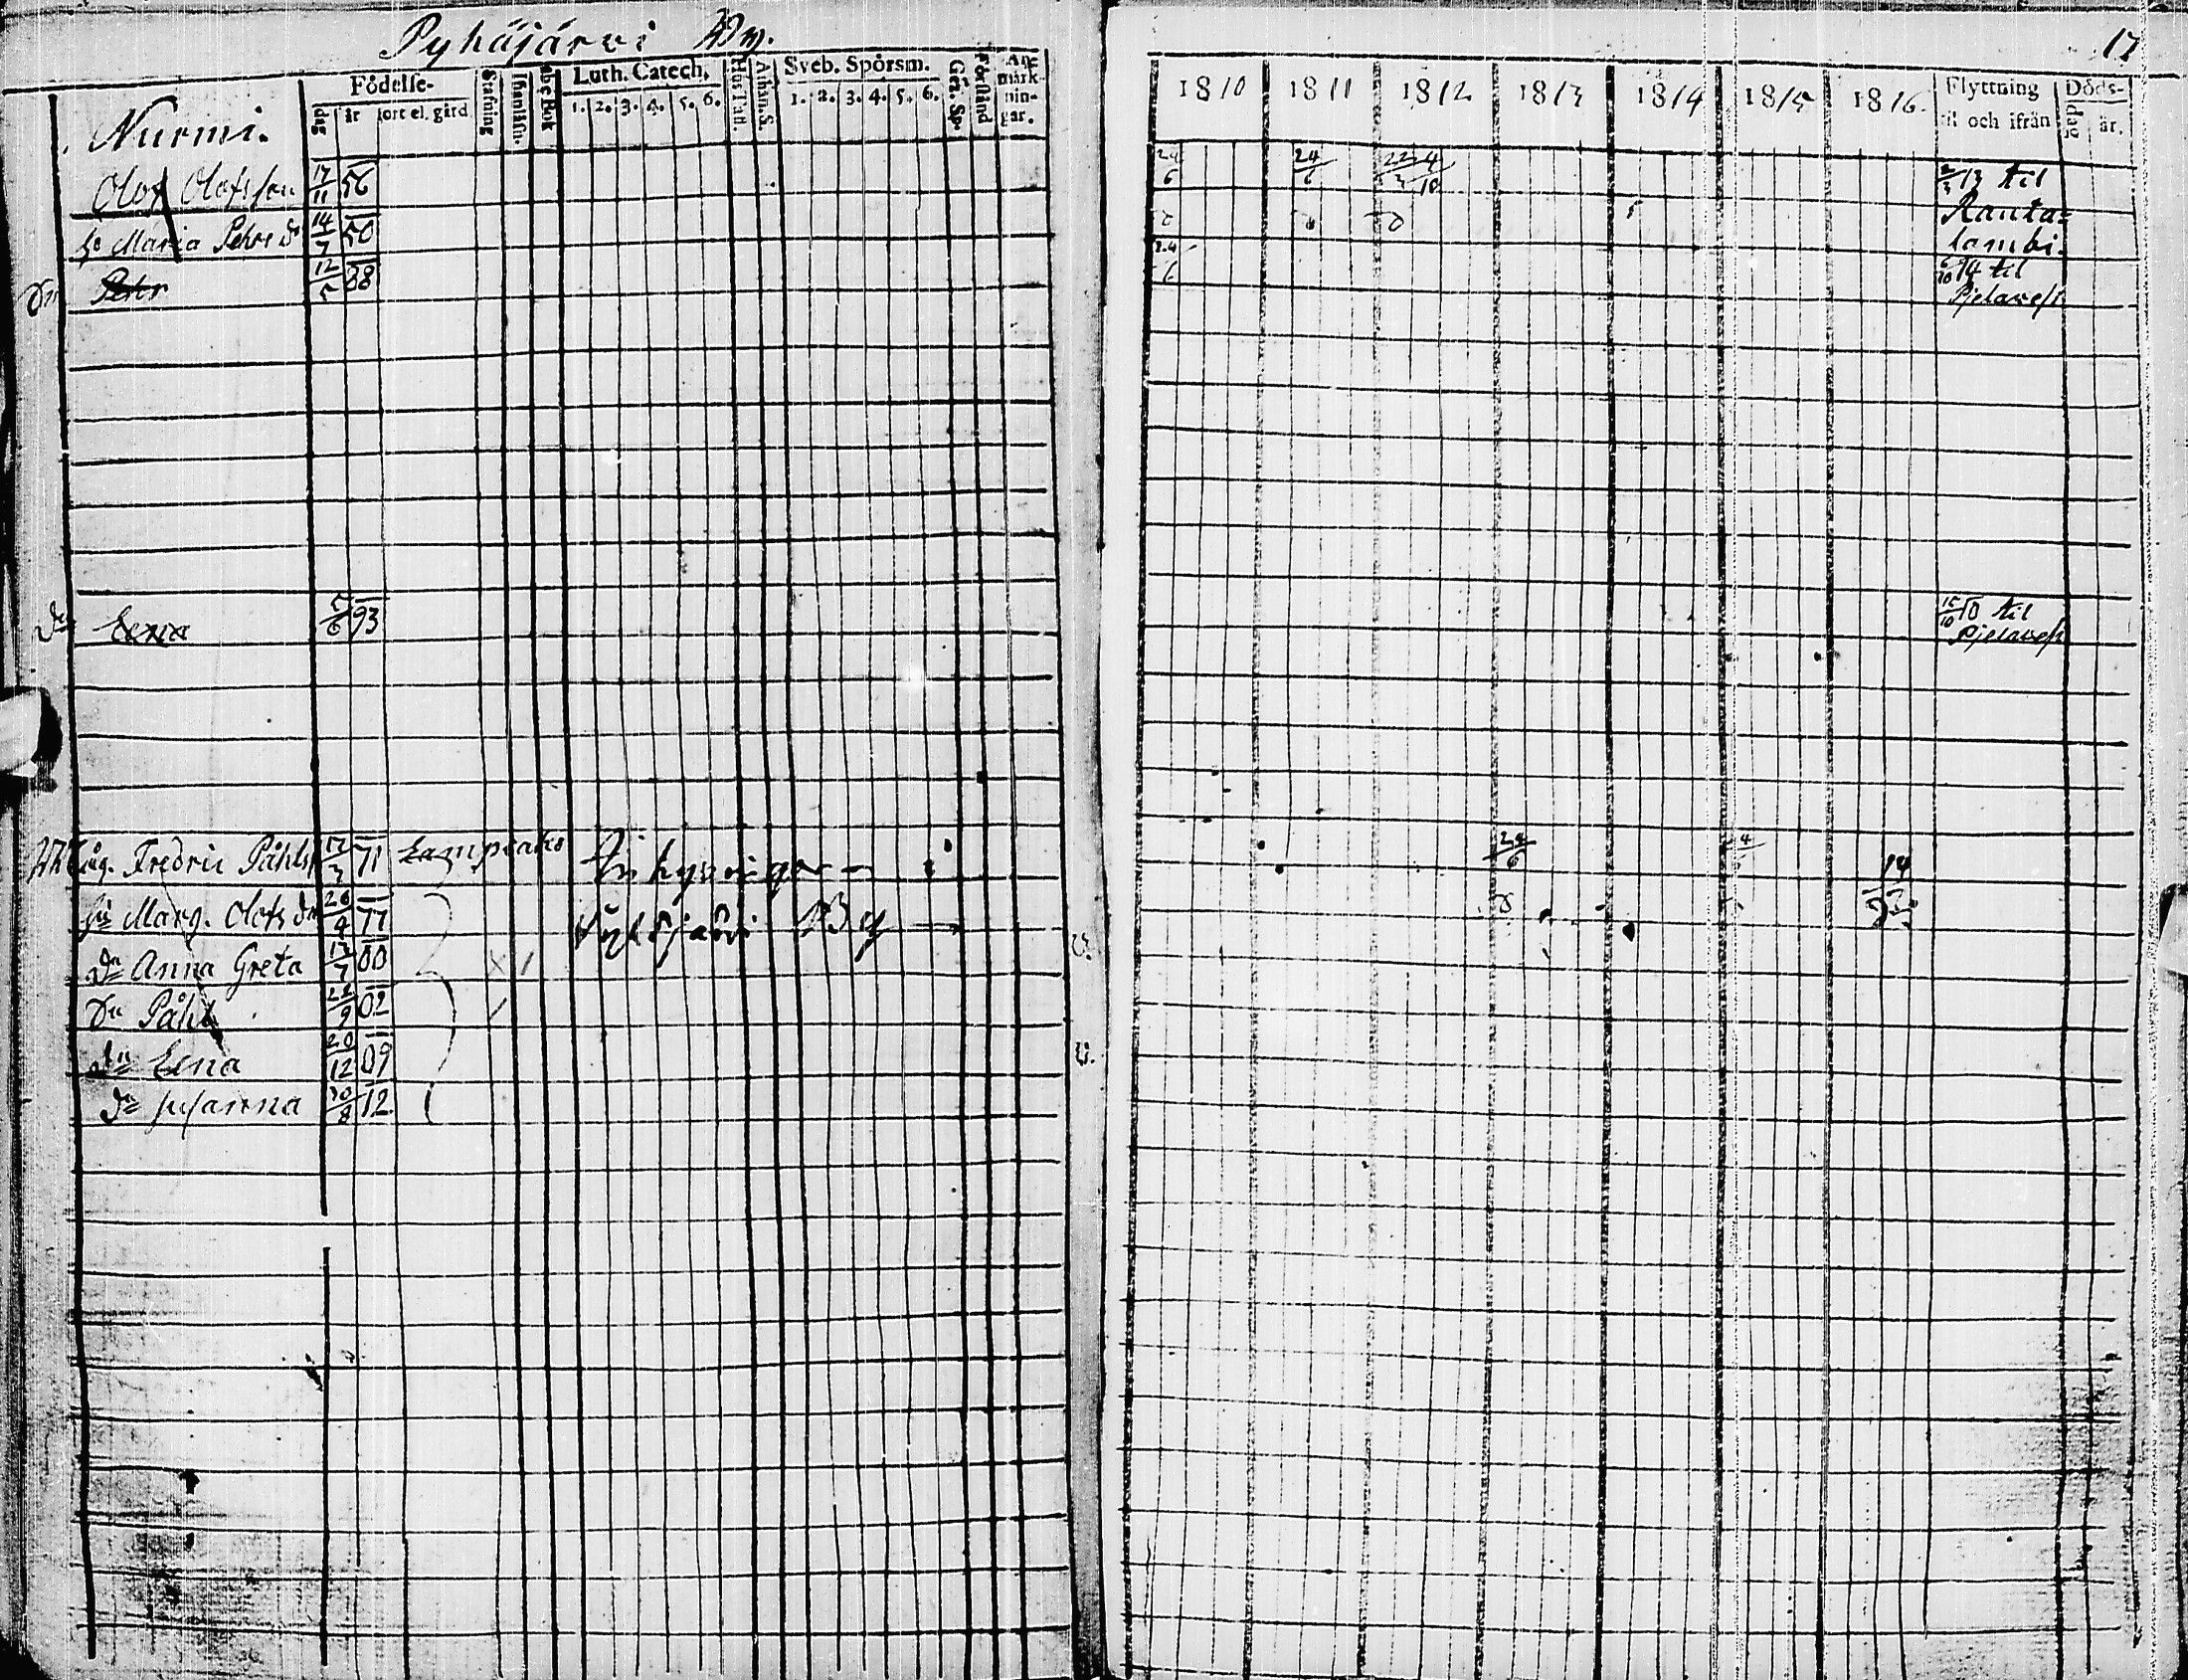 Pyhäjärvi
17
Nurmi.
Födelse-
dag år ort el. gård
Stafning
Abc Bok
Luth. Catech.
1. 2. 3. 4. 5. 6.
Hus Tafl.
Athan. S.
Sveb. Spörsm.
1. 2. 3. 4. 5. 6.
Gen. Sp.
Förstånd
An-
märk-
nin-
gar.
1810 1811 1812 1813 1814 1815 1816
Flyttning
til och ifrån
Döds-
dag år.
Olof Olofsson 17/11 56 24/6 24/6 2/3 13 til
h. Maria Pehrs dr 14/7 50 Ranta-
lambi.
Pehr 12/5 88 24/6 6/10 14 til
Pjelavesi
dr Lena 5/6 93 15/10 10 til
Pjelavesi
Fredric Påhls 17/3 71 Lampiaho 24/6
hu Marg. Olofs dr 26/4 77
dr Anna Greta 13/7 00
Påhl 22/9 02
dr Lena 20/12 09
dr Susanna 30/8 12
14